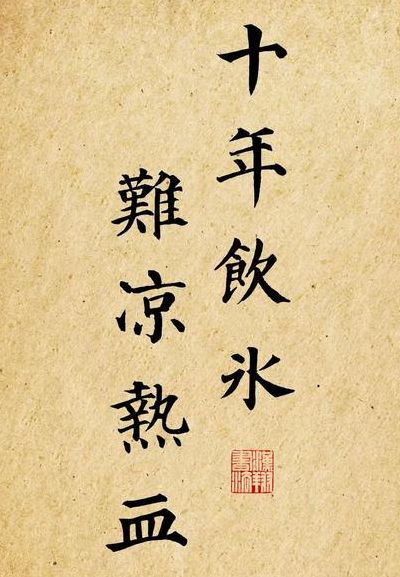 十年飲氷
難凉熱血